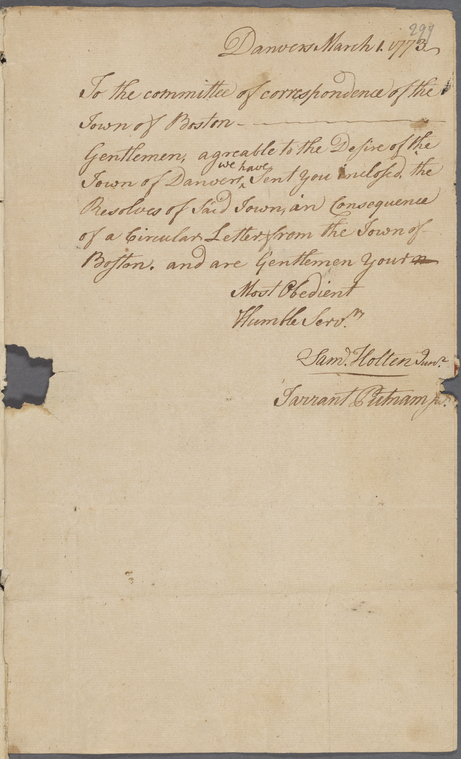 299
Danvers March 1. 1773
To the committee of correspondence of the
Town of Boston
Gentlemen, agreable to the Desire of the
Town of Danvers we have Sent you inclosed, the
Resolves of Said Town, in Consequence
of a Circular Letter from the Town of
Boston. and are Gentlemen your
Most Obedient
Humble Servts
Saml. Holten Junr.
Tarrant Putnam Jr.